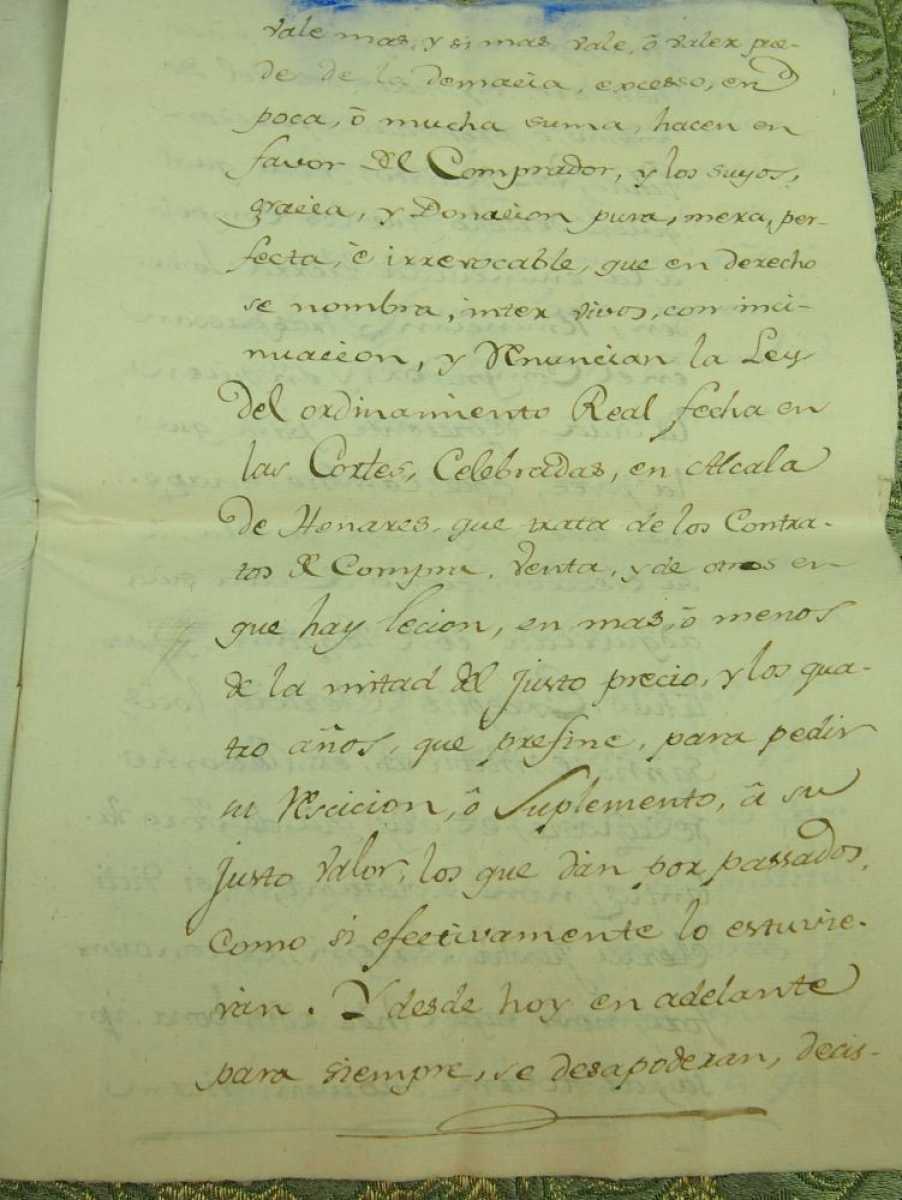 vale mas, y si mas vale, ô valer pue-
de de la demacia, excesso, en
poca, ô mucha suma, hacen en
favor del Comprador, y los suyos,
gracia, y Donacion pura, mera, per-
fecta, ê irrevocable, que en derecho
se nombra, inter vivos, con inci-
nuacion, y Renuncian la Ley
del ordinamiento Real fecha en
las Cortes, Celebradas, en Alcala
de Henares, que trata de los Contra-
tos de Compra, Venta, y de otros en
que hay lecion, en mas, ô menos
de la mitad del justo precio, y los qua-
tro años, que prefine, para pedir
su Rescicion, ô Suplemento, â su
justo valor, los que dàn por passados,
como si efectivamente lo estuvie-
ran. Y desde hoy en adelante
para siempre, se desapoderan, decis-